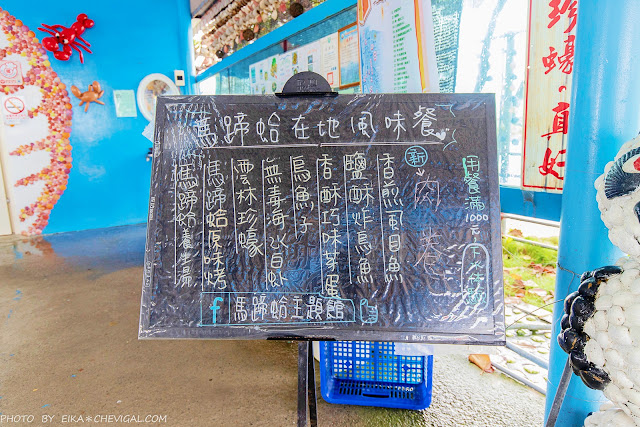 馬蹄蛤在地風味餐
用餐滿1000元
新
肉卷
香煎虱目魚
鹽酥炸烏魚
香酥巧味菜蛋
烏魚子
無毒海水白蝦
雲林珍蠔
馬蹄蛤原味烤
馬蹄蛤養生湯
f 馬蹄蛤主題館
珍蠔·真好
PHOTO BY EIKA＊CHEVIGAL.COM